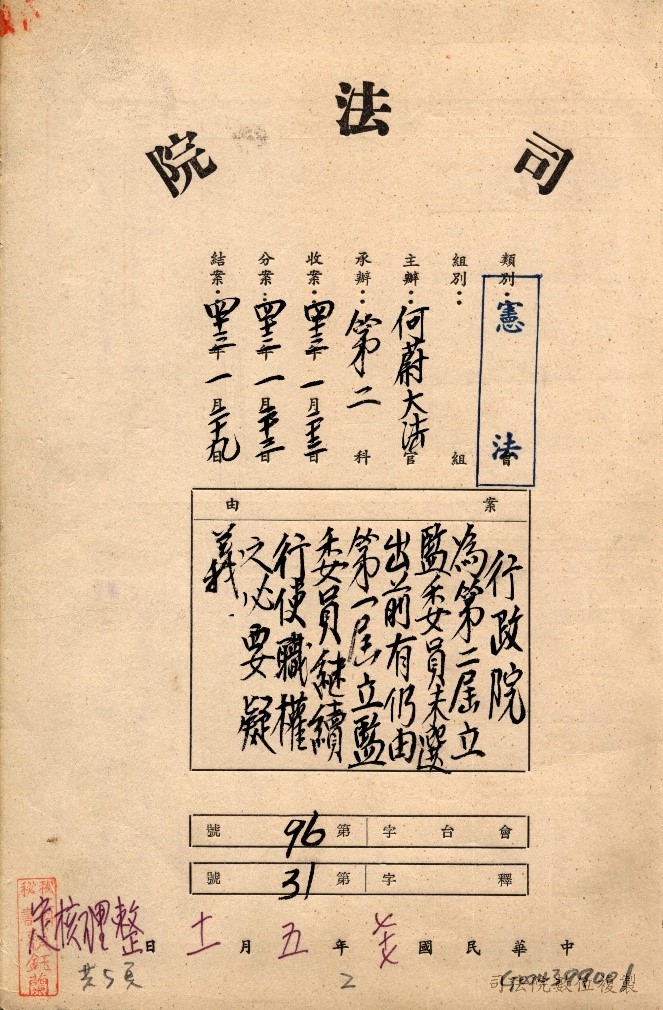 司法院
類別：憲法會
組別：組
主辦：何蔚大法官
承辦：第二科
收案：四十三年一月二十三日
分案：四十三年一月二十三日
結案：四十三年一月二十九日
案由
行政院
為第二屆立
監委員未選
出前有仍由
第一屆立監
委員繼續
行使職權
之必要疑
義
會台字第96號
釋字第31號
中華民國 年五月十一日整理核定
共5頁
2
司法院數位複製